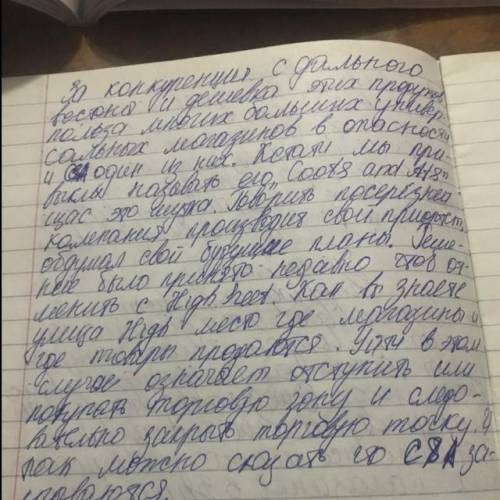 За конкуренция с дального
востока и дешевка этих продуктов
польза многих больших универ-
сальных магазинов в опасности
и C&A один из них. Кстати мы при-
выкли называть его „Coats and A
щас это шутка. Говорить посередней
компания производит свой приоритет
обдумал свой будущие планы. Реше-
ние было принято недавно чтоб от-
менить с High Street. Как вы знаете
улица High место где магазины и
где товары продаются. Уйти в этом
случае означает отступить или
покупать торговую зону и следо-
вательно закрыть торговую тоску. И
так можно сказать что C&A за-
крываются.